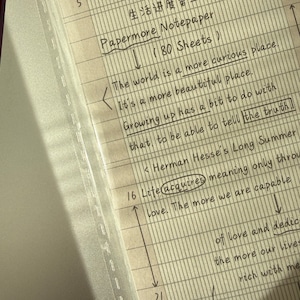 5
生活进度
Papermore Notepaper
( 80 Sheets )
The world is a more curious place.
It's a more beautiful place.
Growing up has a bit to do with
that, to be able to tell the truth.
< Herman Hesse's Long Summer
16 Life acquires meaning only thro
love. The more we are capable
of love and dedic
the more our live
rich with me
21